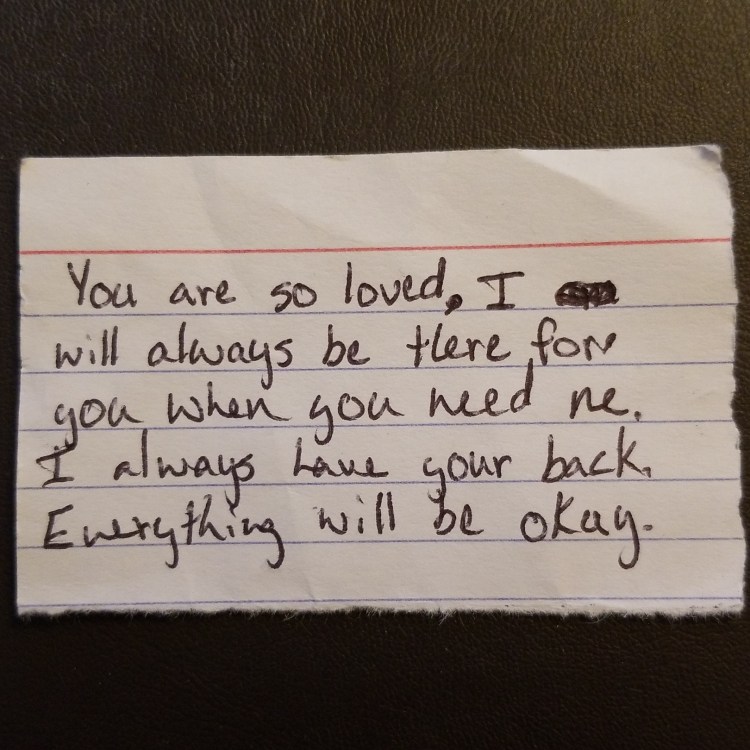 You are so loved, I
will always be there for
you when you need me.
I always have your back.
Everything will be okay.